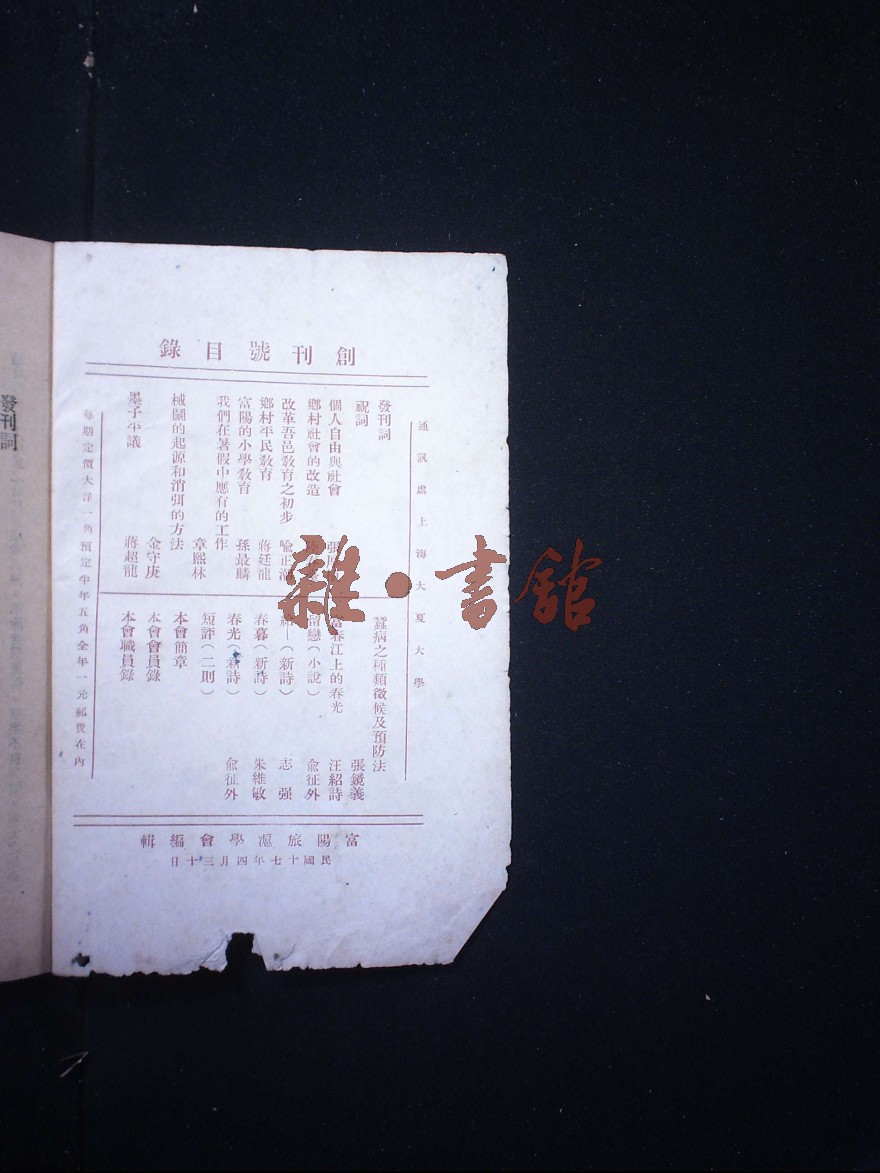 創刊號目錄
通訊處上海大夏大學
發刊詞
祝詞
個人自由與社會 張
鄉村社會的改造
改革吾邑敎育之初步 喩正
鄉村平民敎育 蔣廷龍
富陽的小學敎育 孫最麟
我們在暑假中應有的工作 章熙林
械鬭的起源和消弭的方法 金守庚
墨子平議 蔣超龍
蠶病之種類徵候及預防法 張鏡義
春江上的春光 汪紹詩
留戀(小說) 俞征外
給—(新詩) 志强
春暮(新詩) 朱維敏
春光(新詩) 俞征外
短評(二則)
本會簡章
本會會員錄
本會職員錄
每期定價大洋一角預定半年五角全年一元郵費在內
富陽旅滬學會編輯
民國十七年四月三十日
發刊詞
雜·書館